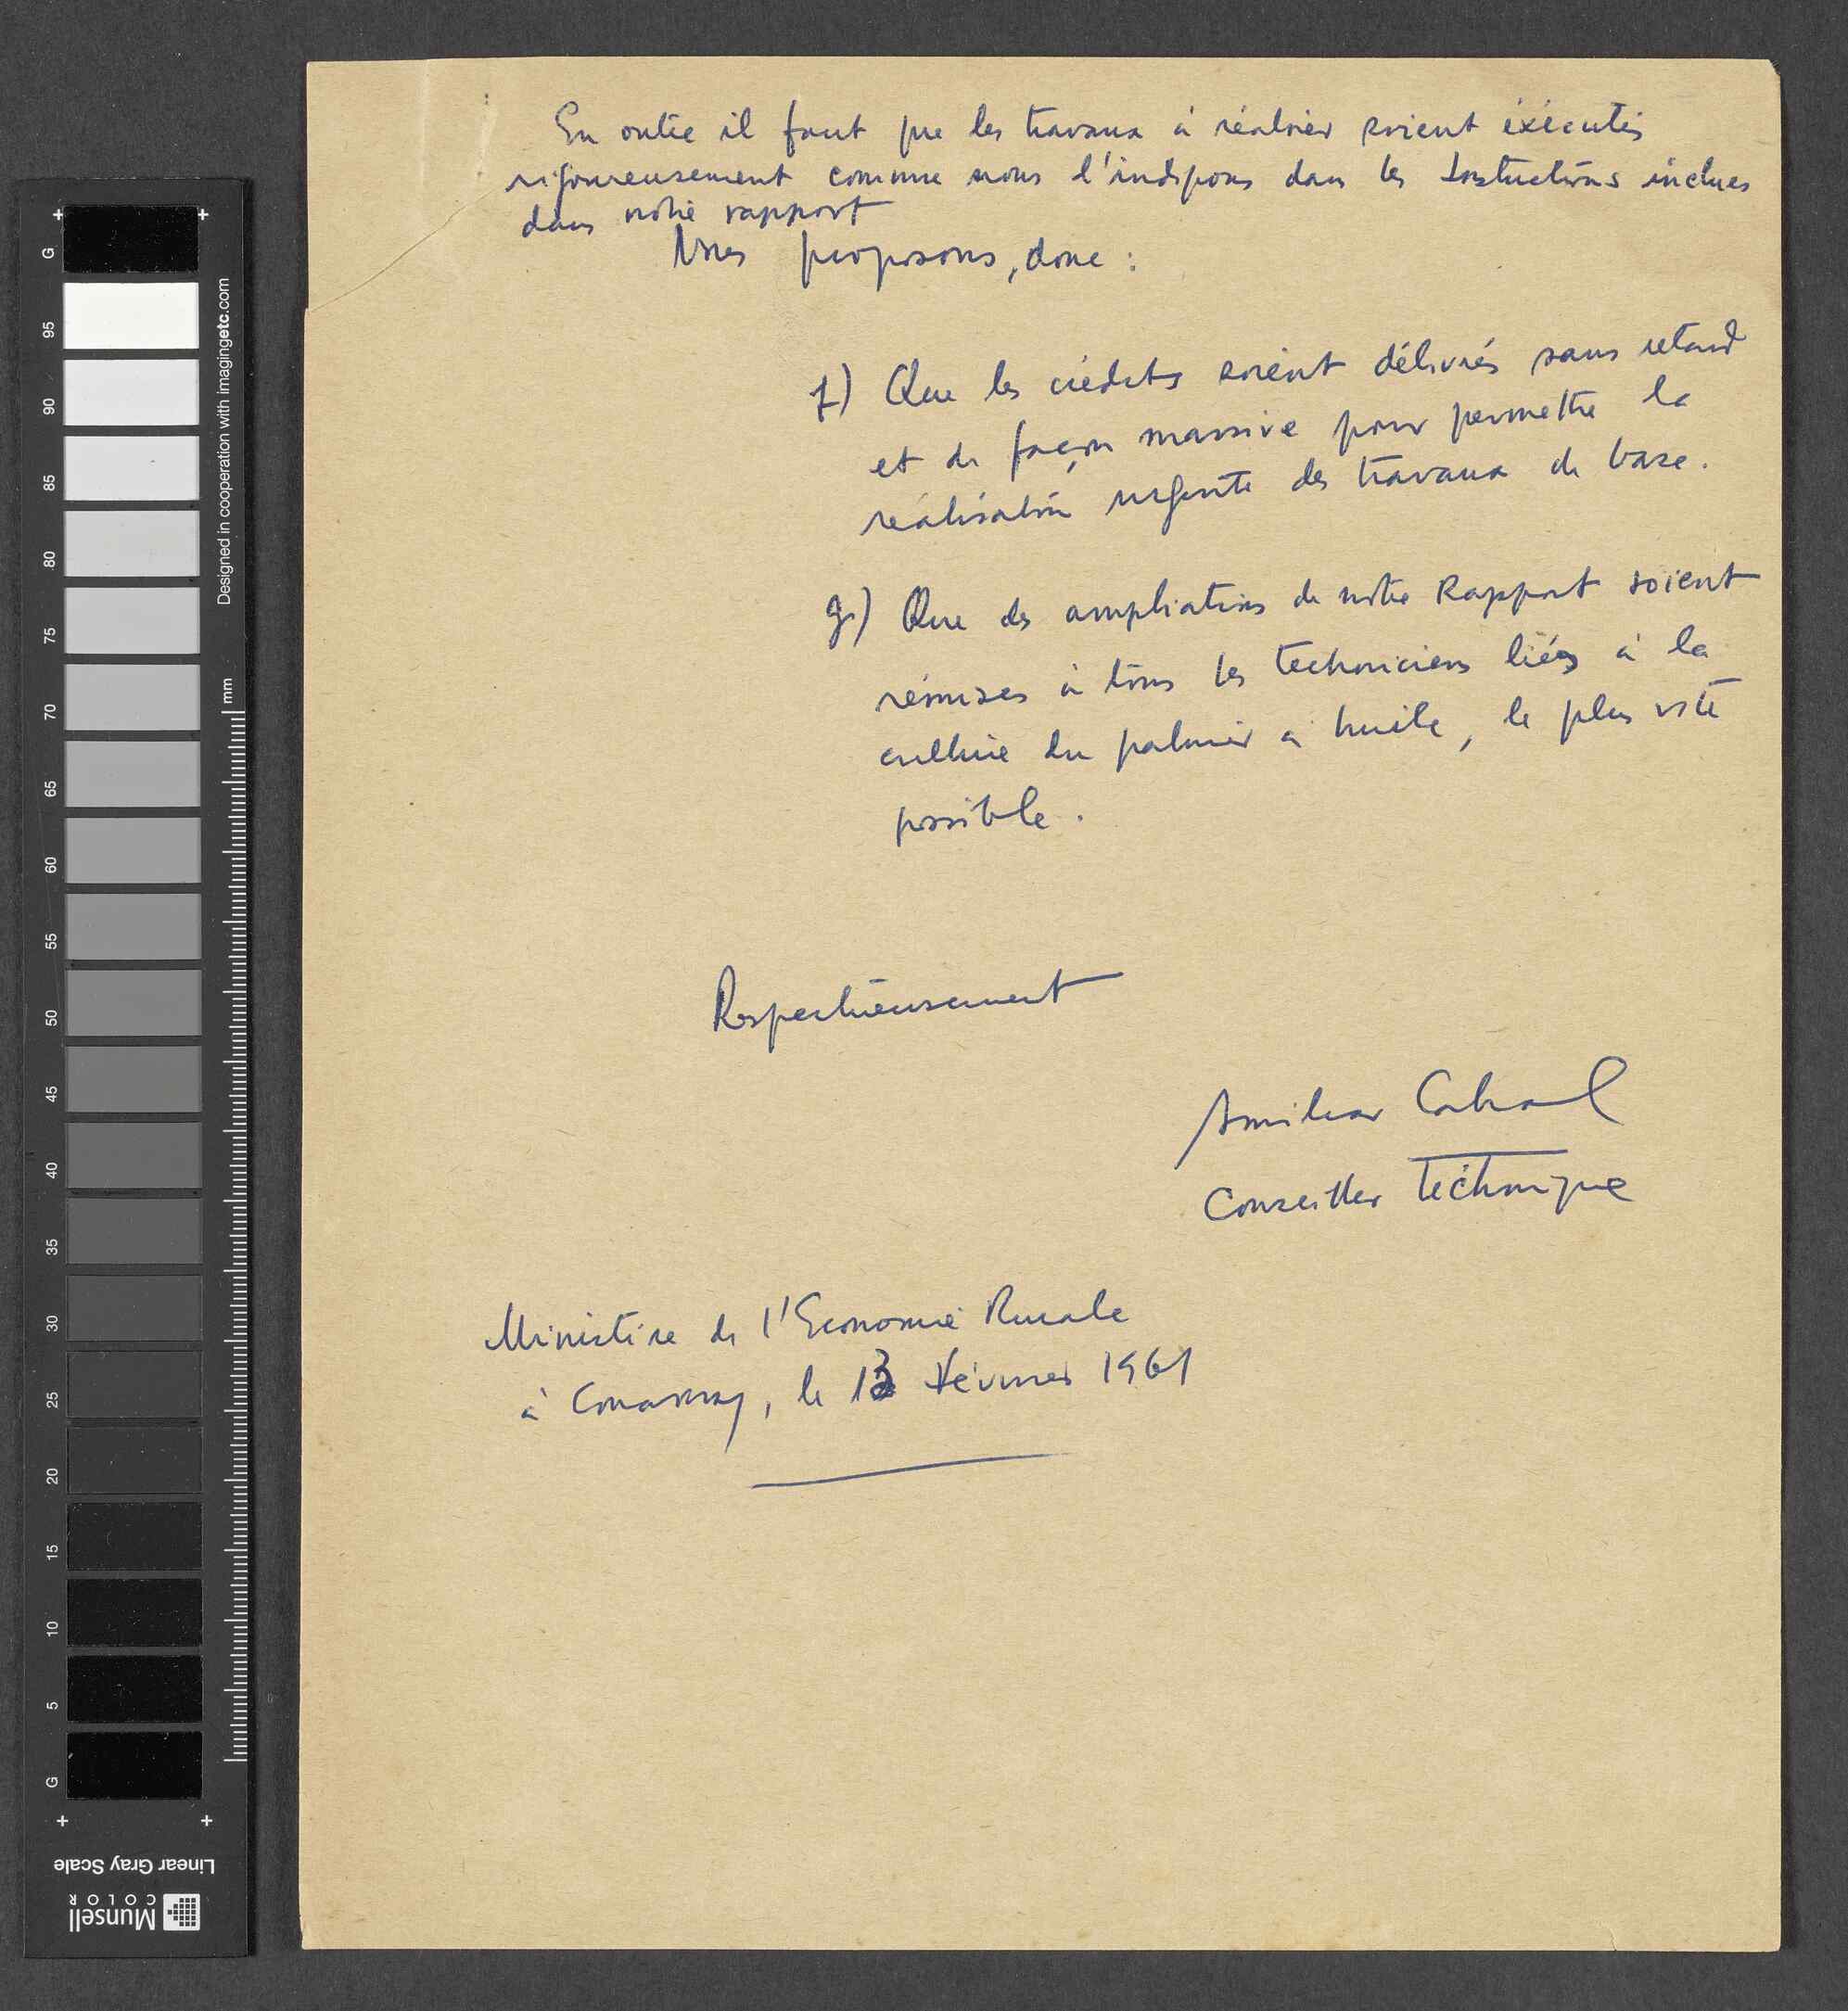 En outre il faut que les travaux à réaliser soient éxécutés
rigoureusement comme nous l'indiquons dans les Instructions inclues
dans notre rapport
Nous proposons, donc :
1) Que les crédits soient délivrés sans retard
et de façon massive pour permettre la
réalisation urgente des travaux de base.
2) Que des ampliations de notre Rapport soient
rémises à tous les techniciens liés à la
culture du palmier à huile, le plus vite
possible.
Respectueusement
Amilcar Cabral
Conseiller Téchnique
Ministère de l'Economie Rurale
à Conakry, le 13 Février 1961
G
95
90
85
80
75
70
65
60
55
50
45
40
35
30
25
20
15
10
5
G
mm
Designed in cooperation with imagingetc.com
Linear Gray Scale
Munsell
COLOR